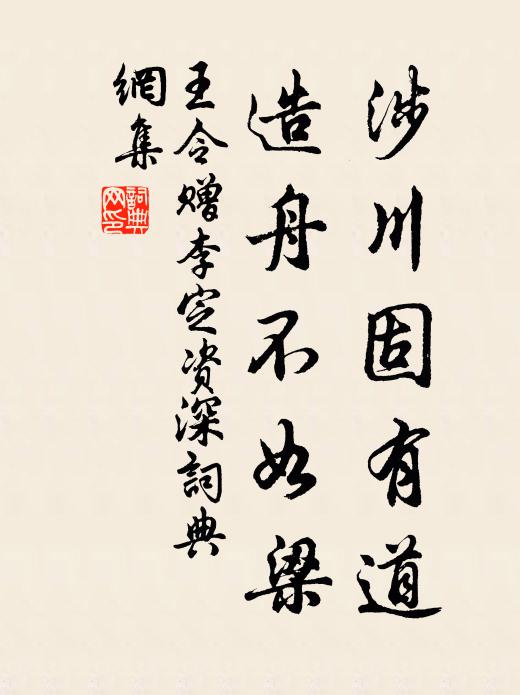 涉川固有道
造舟不如梁
王令赠李定资深词典
網集
詞典
网印